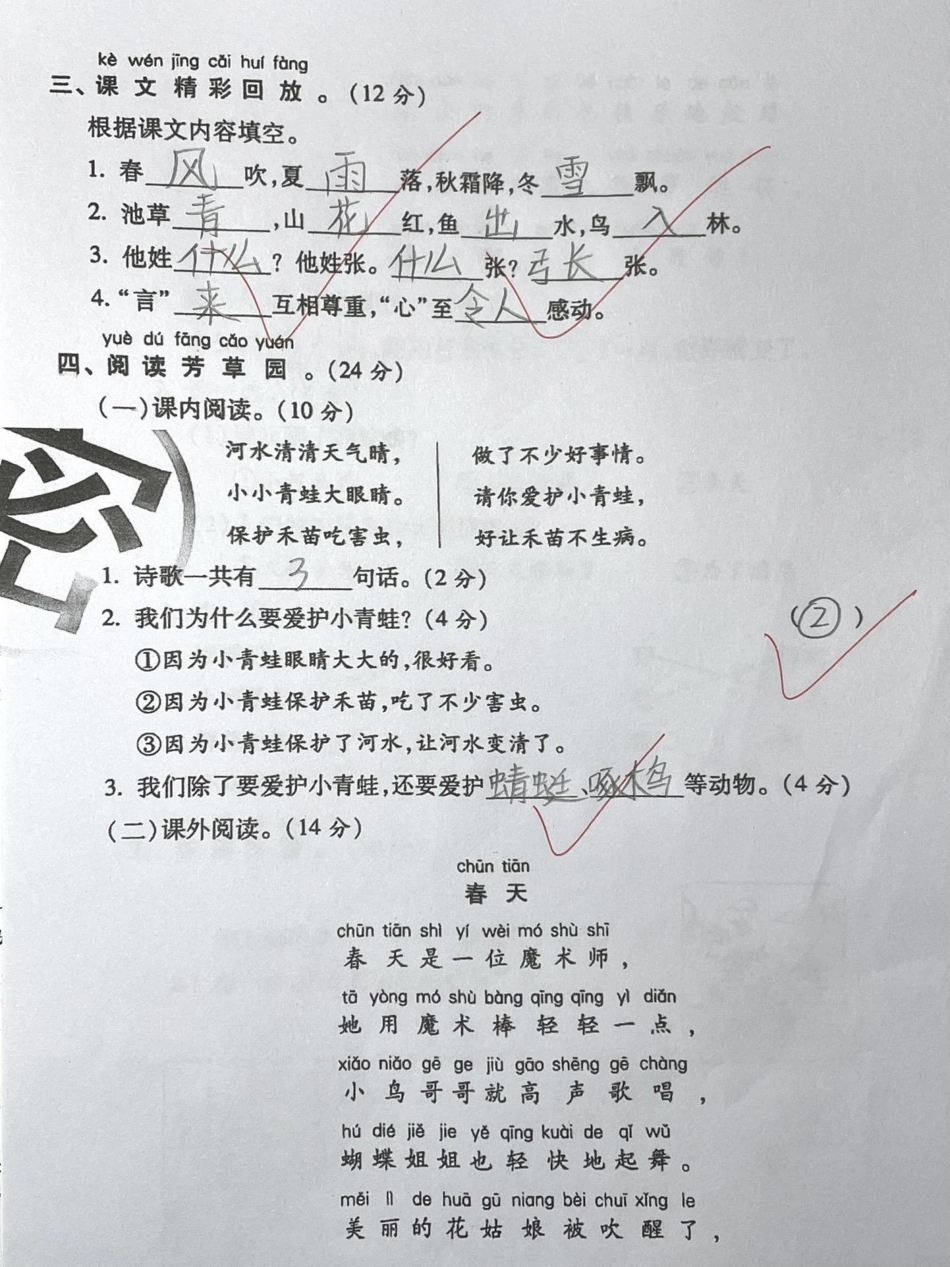 kè wén jīng cǎi huí fàng
三、课文精彩回放。(12分)
根据课文内容填空。
1. 春风吹,夏雨落,秋霜降,冬雪飘。
2. 池草青,山花红,鱼出水,鸟入林。
3. 他姓什么?他姓张。什么张?弓长张。
4. “言”来互相尊重,“心”至令人感动。
yuè dú fāng cǎo yuán
四、阅读芳草园。(24分)
(一)课内阅读。(10分)
河水清清天气晴,
小小青蛙大眼睛。
保护禾苗吃害虫,
做了不少好事情。
请你爱护小青蛙,
好让禾苗不生病。
1. 诗歌一共有 3 句话。(2分)
2. 我们为什么要爱护小青蛙?(4分) (②)
①因为小青蛙眼睛大大的,很好看。
②因为小青蛙保护禾苗,吃了不少害虫。
③因为小青蛙保护了河水,让河水变清了。
3. 我们除了要爱护小青蛙,还要爱护蜻蜓、啄木鸟等动物。(4分)
(二)课外阅读。(14分)
chūn tiān
春天
chūn tiān shì yí wèi mó shù shī
春天是一位魔术师,
tā yòng mó shù bàng qīng qīng yì diǎn
她用魔术棒轻轻一点,
xiǎo niǎo gē ge jiù gāo shēng gē chàng
小鸟哥哥就高声歌唱,
hú dié jiě jie yě qīng kuài de qǐ wǔ
蝴蝶姐姐也轻快地起舞。
měi lì de huā gū niang bèi chuī xǐng le
美丽的花姑娘被吹醒了,